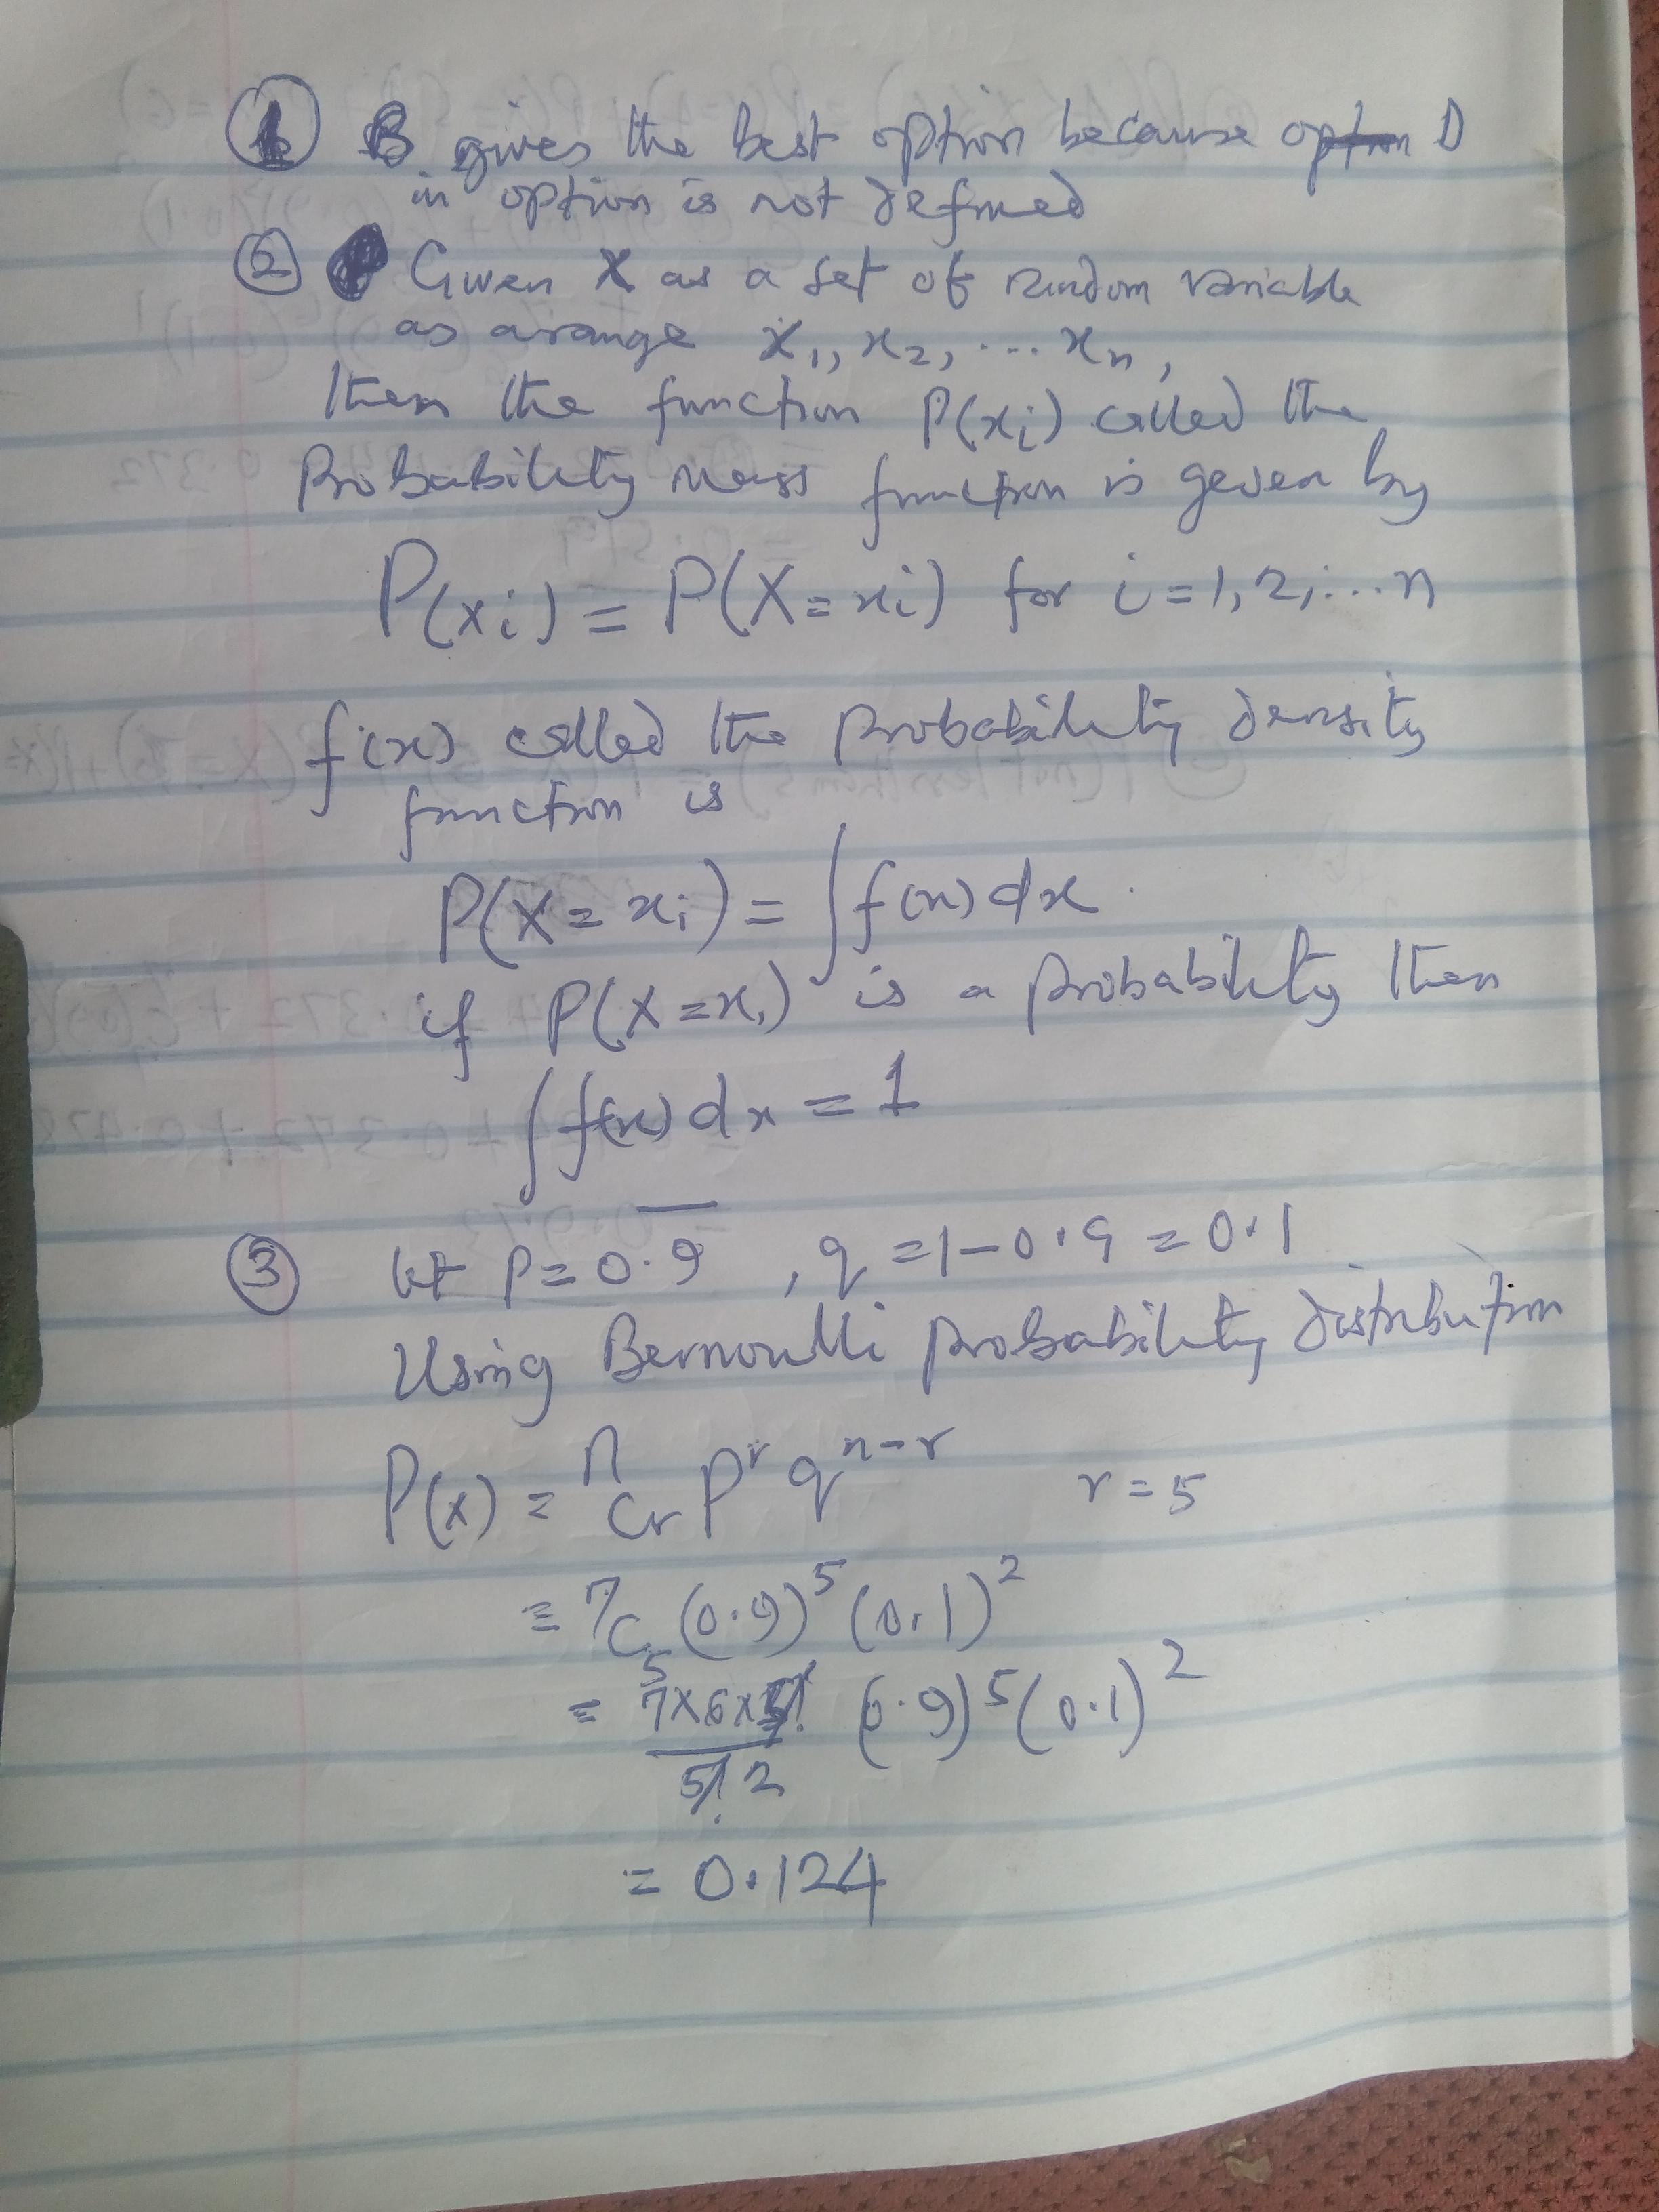 ① B gives the best option because D
in option is not defined
② Given X as a set of random variable
as arange x₁, x₂, ... xₙ,
then the function P(xᵢ) called the
Probability mass function is geven by
P(xᵢ) = P(X = xᵢ) for i = 1, 2, ... n
f(x) called the probability density
function is
P(X = xᵢ) = ∫f(x)dx.
if P(X = xᵢ) is a probability then
∫f(x)dx = 1
③ let P = 0.9, q = 1 - 0.9 = 0.1
Using Bernoulli probability distribution
P(x) = ⁿCr Pʳ qⁿ⁻ʳ r = 5
= ⁷C₅ (0.9)⁵ (0.1)²
= 7×6×5! / 5! 2 (0.9)⁵ (0.1)²
= 0.124